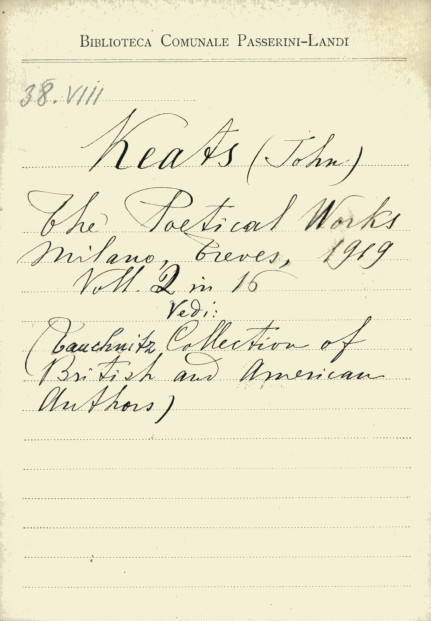 BIBLIOTECA COMUNALE PASSERINI-LANDI
38.VIII
Keats (John)
The Poetical Works
Milano, Treves, 1919
Voll. 2 in 16
Vedi:
(Tauchnitz Collection of
British and American
Authors)